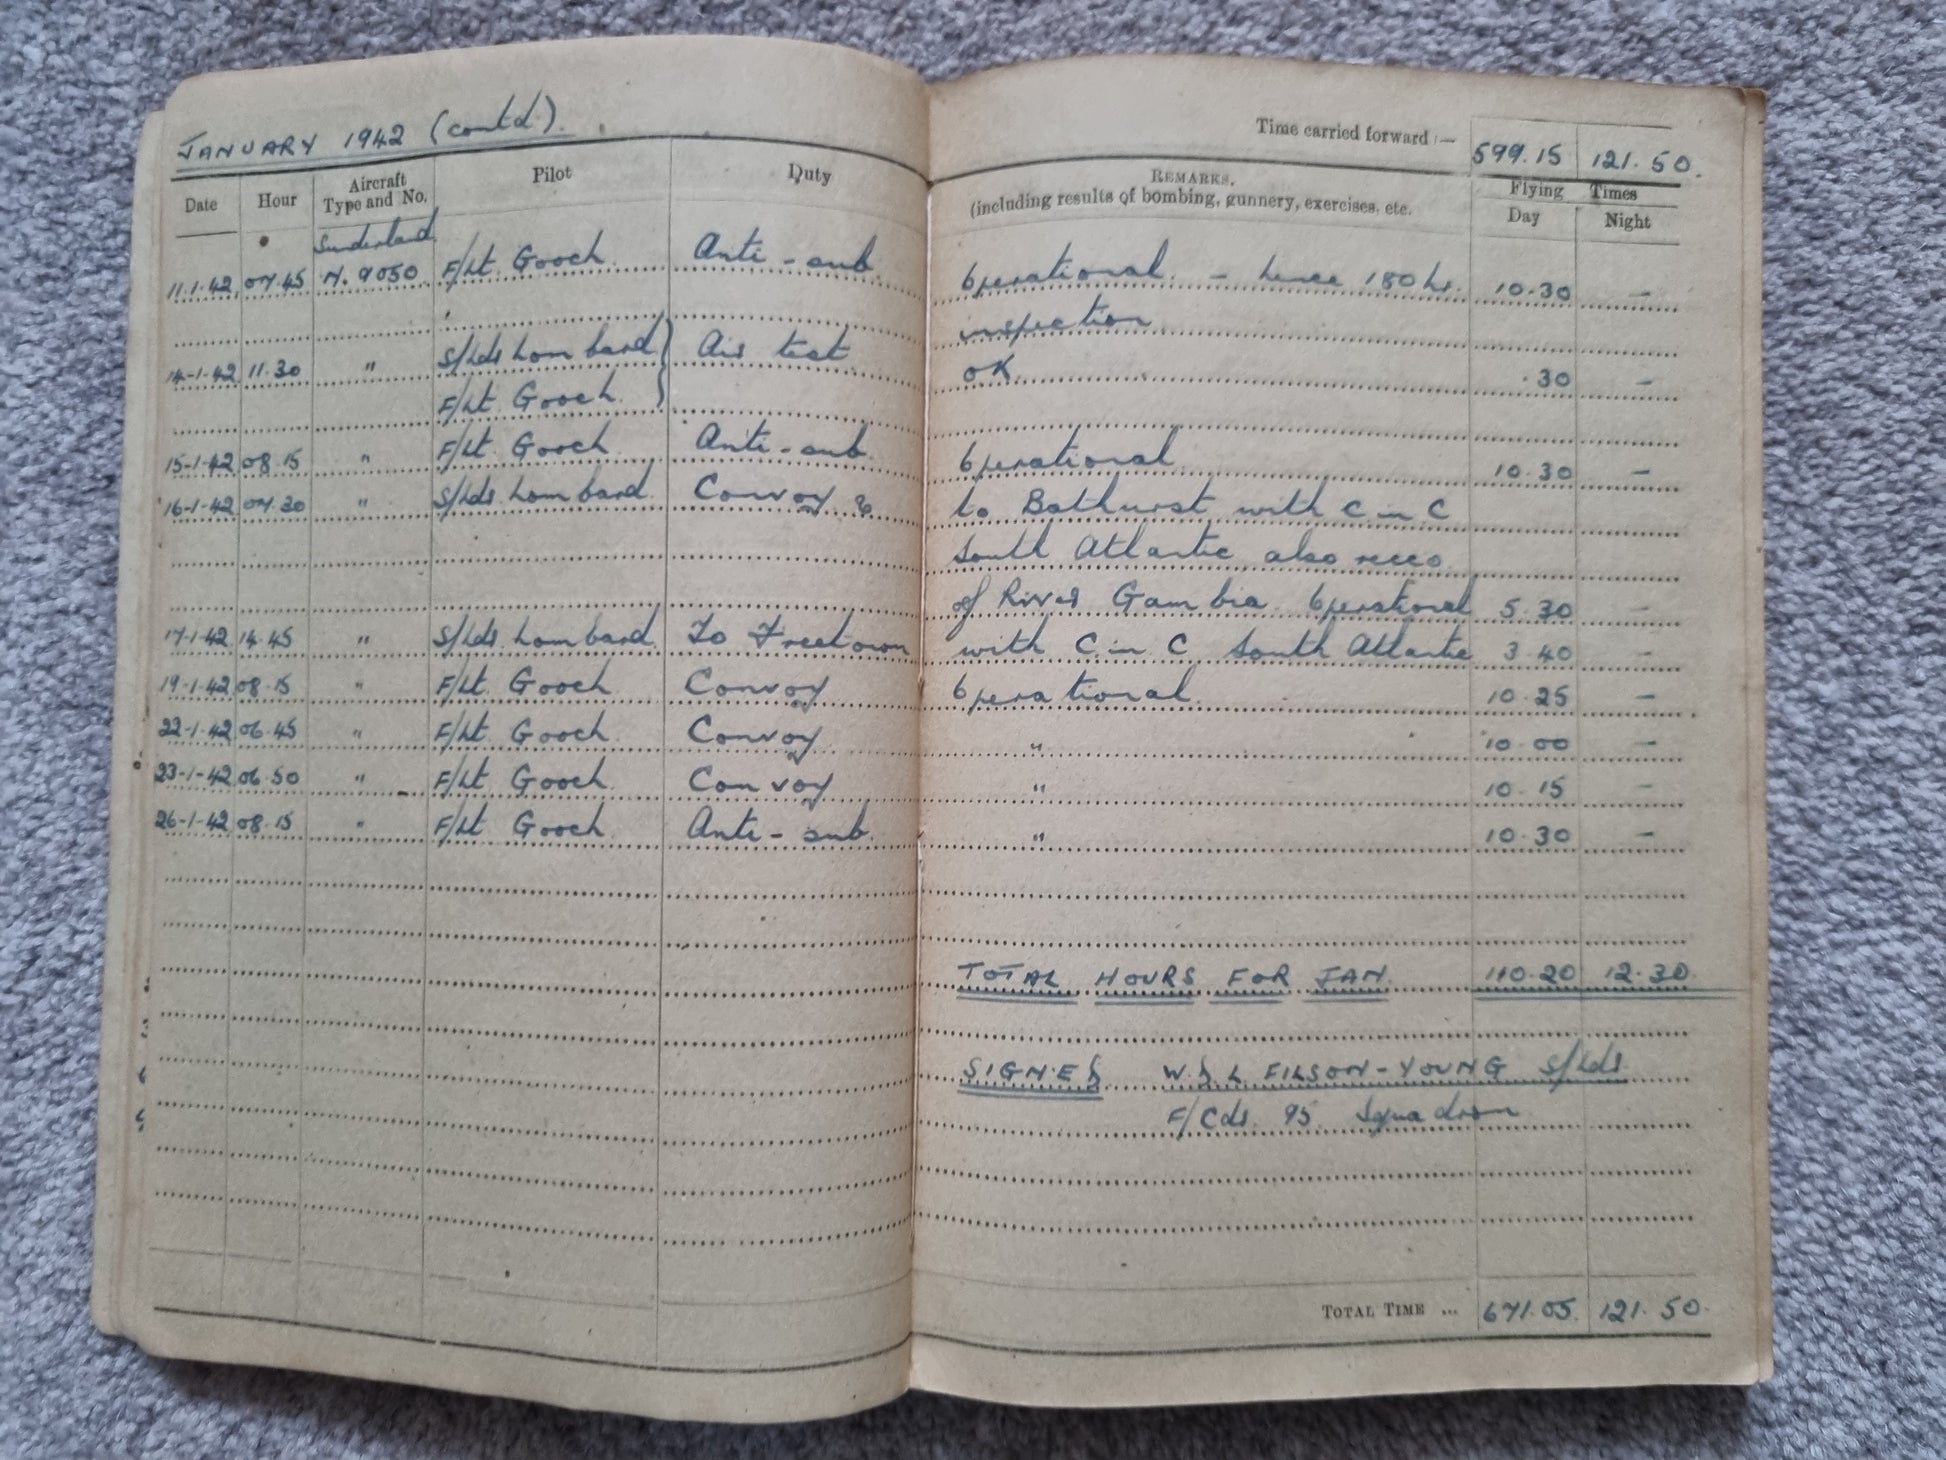 JANUARY 1942 (contd).
Time carried forward :— 599.15 121.50.
Date Hour Aircraft Type and No. Pilot Duty REMARKS. (including results of bombing, gunnery, exercises, etc. Flying Times Day Night
Sunderland
11.1.42 07.45 N.9050 F/Lt Gooch Anti-sub. Operational. - hence 180 hr. 10.30 —
inspection
14-1-42 11.30 " S/Ldr Lombard Air test OK. .30 —
F/Lt Gooch
15-1-42 08.15 " F/Lt Gooch Anti-sub Operational 10.30 —
16-1-42 07.30 " S/Ldr Lombard. Convoy & to Bathurst with C in C
South Atlantic also recco
of River Gambia. Operational 5.30 —
17-1-42 14.45 " S/Ldr. Lombard To Freetown with C in C South Atlantic 3.40 —
19-1-42 08.15 " F/Lt Gooch Convoy Operational. 10.25 —
22-1-42 06.45 " F/Lt Gooch Convoy " 10.00 —
23-1-42 06.50 " F/Lt Gooch Convoy " 10.15 —
26-1-42 08.15 " F/Lt Gooch Anti-sub. " 10.30 —
TOTAL HOURS FOR JAN. 110.20 12.30
SIGNED W.D.L FILSON-YOUNG S/Ldr
F/Cdr. 95 Squadron
TOTAL TIME ... 671.05 121.50.